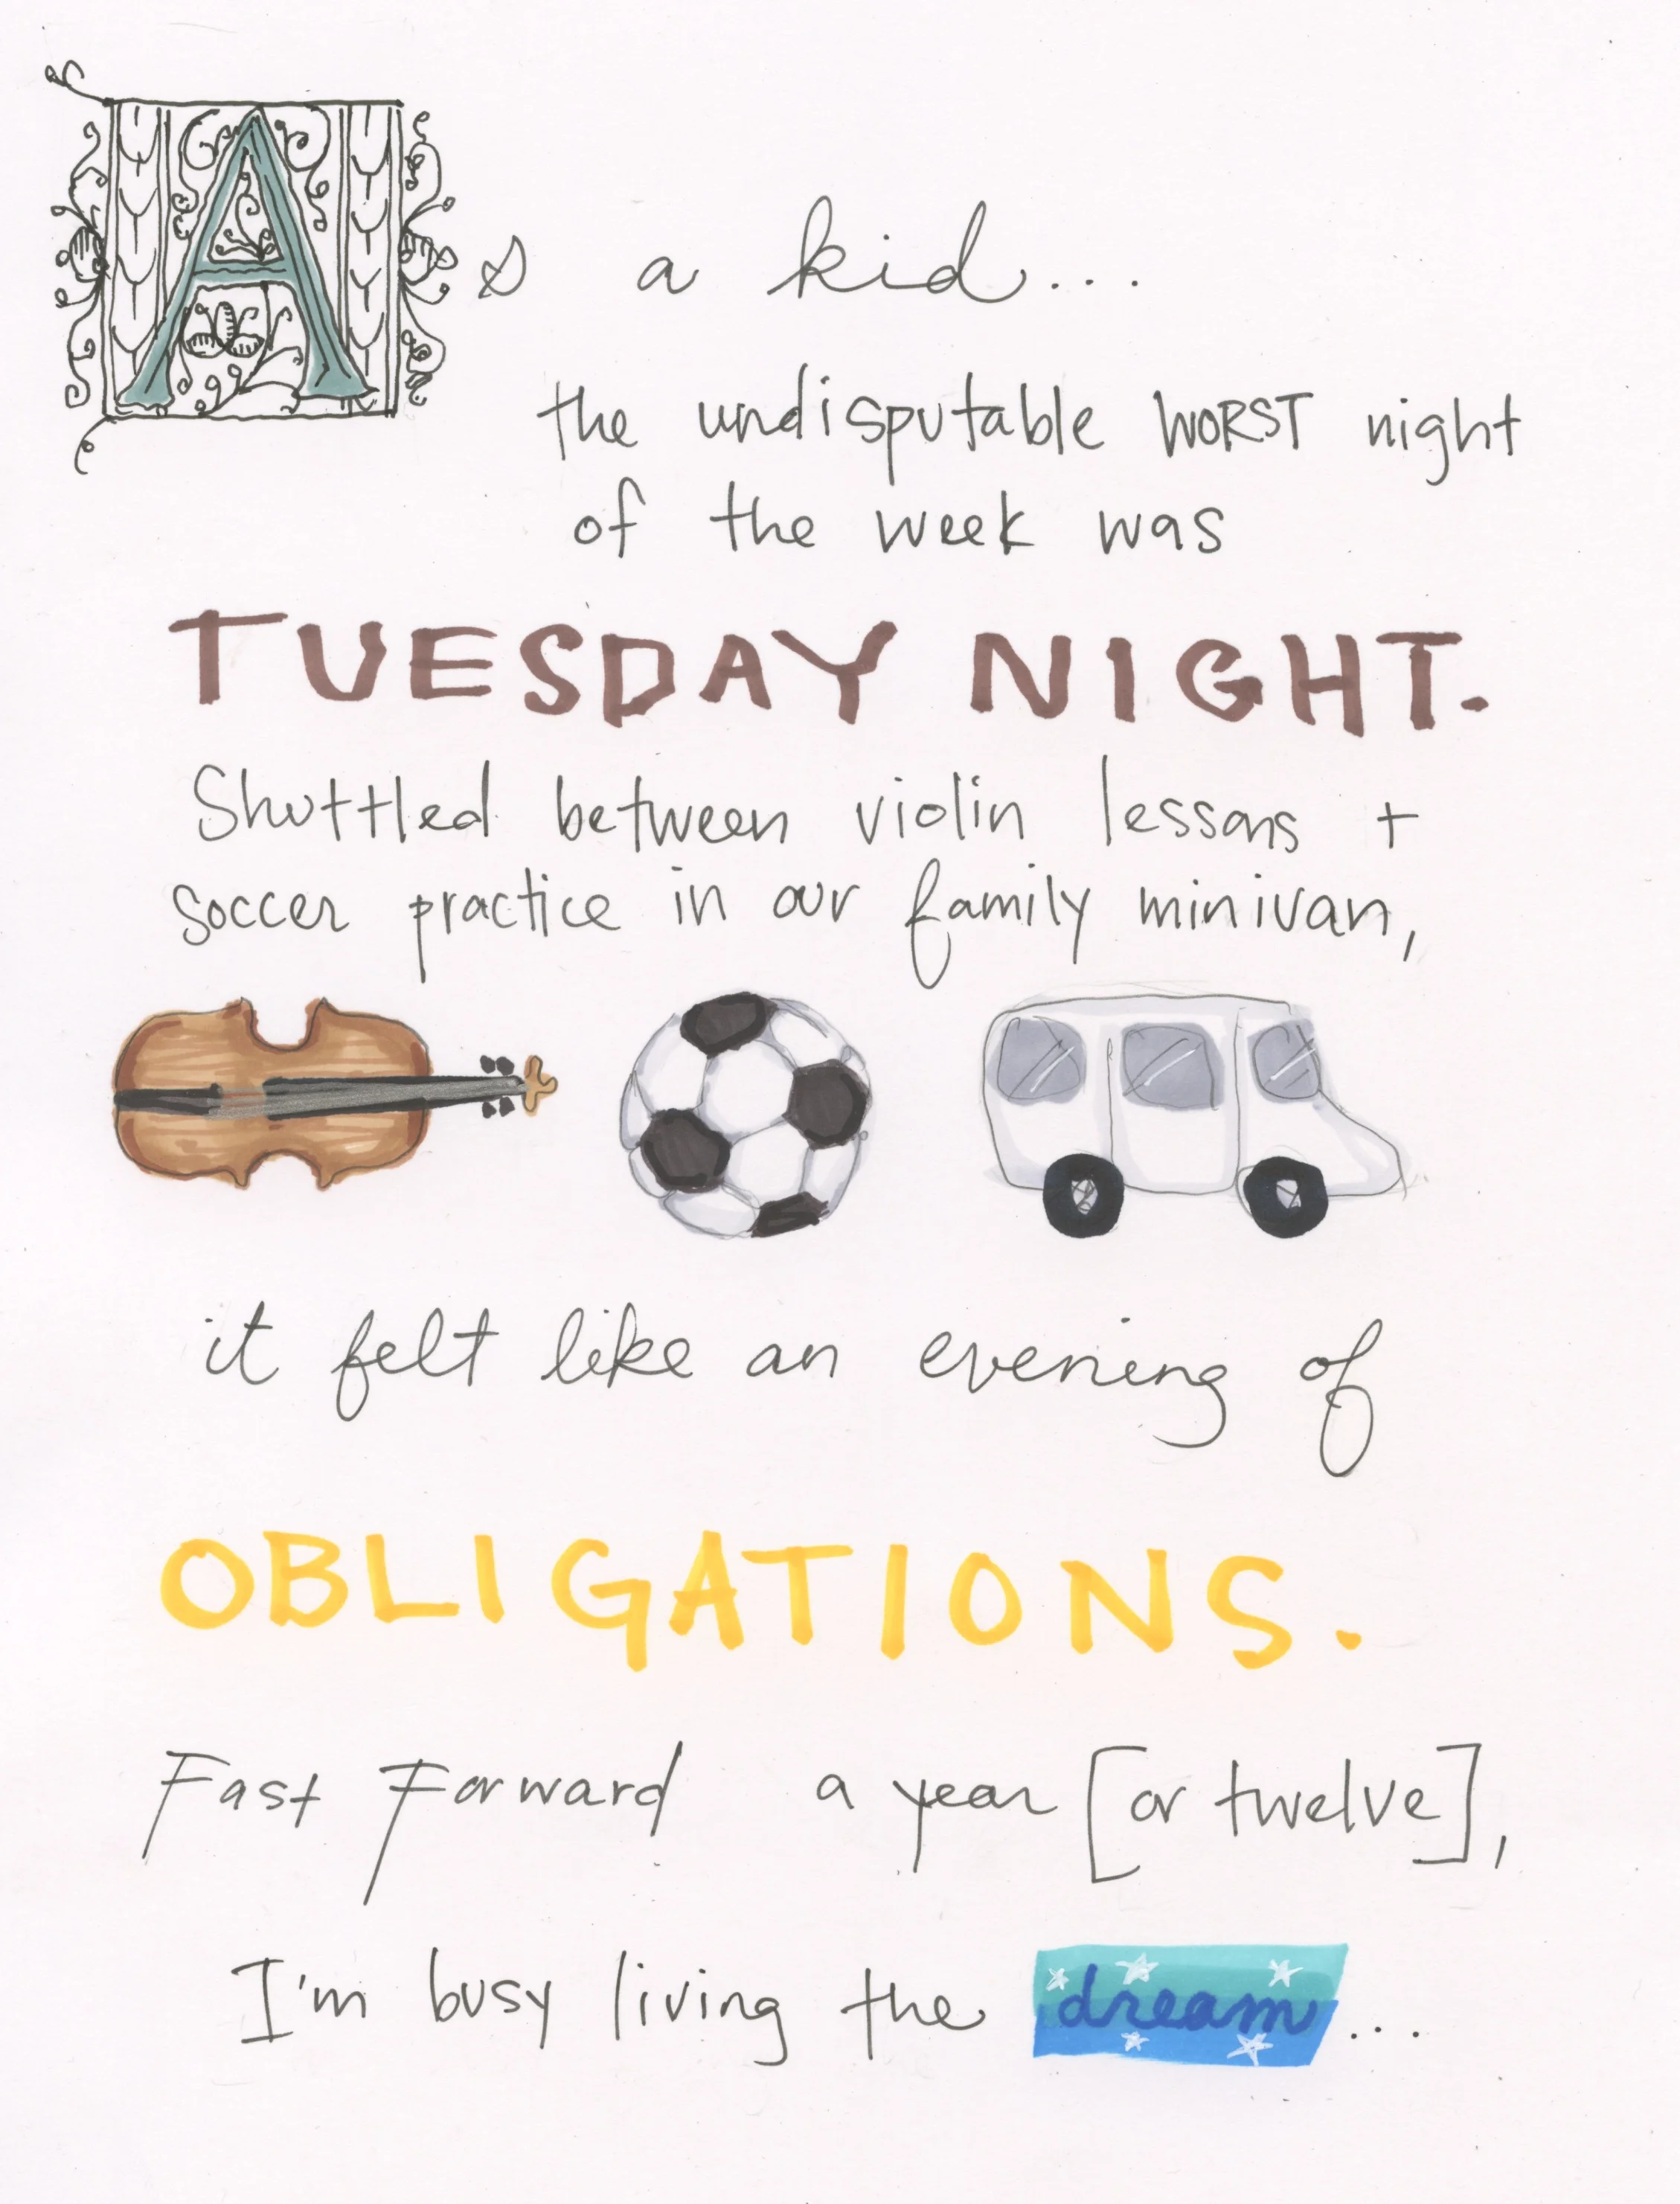 As a kid...
the undisputable WORST night
of the week was
TUESDAY NIGHT.
Shuttled between violin lessons +
soccer practice in our family minivan,
it felt like an evening of
OBLIGATIONS.
Fast Forward a year [or twelve],
I'm busy living the dream...